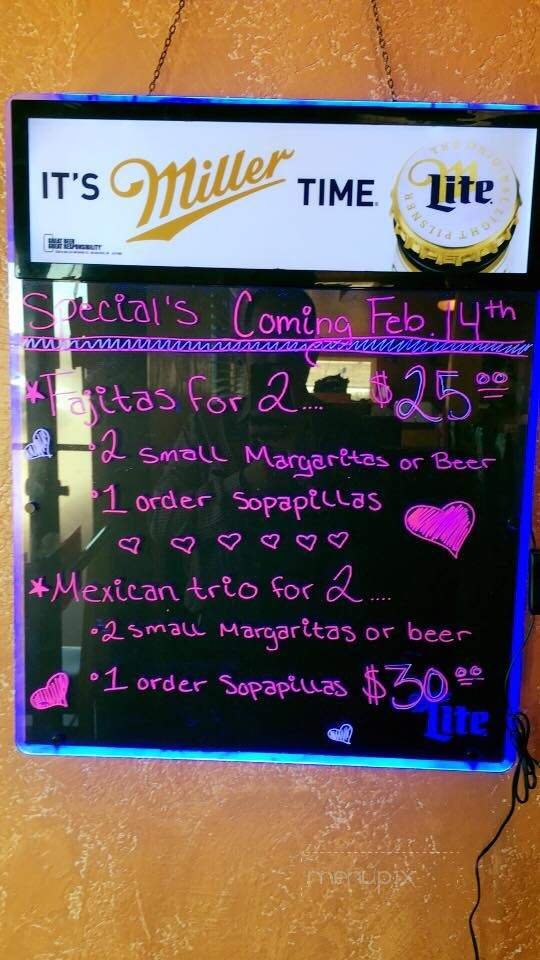 IT'S Miller TIME.
THE ORIGINAL LIGHT PILSNER
Lite
GREAT BEER
GREAT RESPONSIBILITY
Special's Coming Feb. 14th
*Fajitas for 2.... $25.00
•2 small Margaritas or Beer
•1 order Sopapillas
*Mexican trio for 2 ....
•2 small Margaritas or beer
•1 order Sopapillas $30.00
Lite
menupix